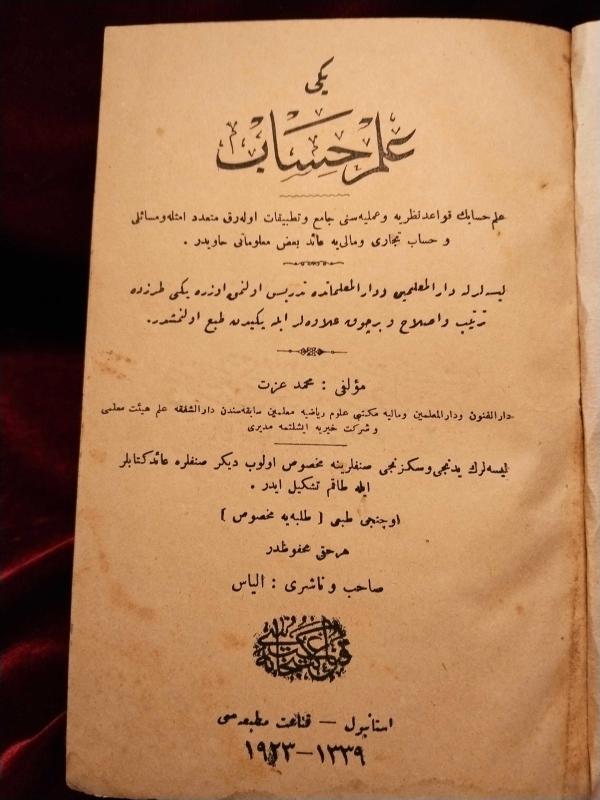 یکی
علم حساب
علم حسابك قواعد نظریه و عملیه سنی جامع و تطبیقات اوله رق متعدد امثله و مسائلی
و حساب تجاری و مالی یه عائد بعض معلوماتی حاویدر .
لیسه لرله دار المعلمین ودار المعلماتده تدریس اولنمق اوزره یکی طرزده
ترتیب و اصلاح و برچوق علاوه لر ایله یکیدن طبع اولنمشدر.
مؤلفی : محمد عزت
دار الفنون ودار المعلمین ومالیه مکتبی علوم ریاضیه معلمین سابقه سندن دار الشفقه علم هیئت معلمی
و شرکت خیریه ایشلتمه مدیری
لیسه لرك یدنجی و سکزنجی صنفلرینه مخصوص اولوب دیکر صنفلره عائد کتابلر
ایله طاقم تشکیل ایدر .
اوچنجی طبعی [ طلبه یه مخصوص ]
هر حقی محفوظدر
صاحب و ناشری : الیاس
استانبول — قناعت مطبعه سی
١٣٣٩—١٩٢٣